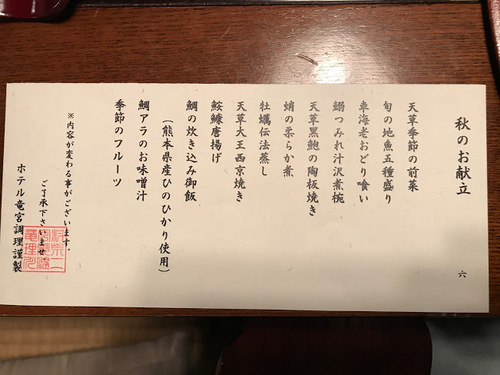 秋のお献立
六
天草季節の前菜
旬の地魚五種盛り
車海老おどり喰い
鰯つみれ汁沢煮椀
天草黒鮑の陶板焼き
蛸の柔らか煮
牡蠣伝法蒸し
天草大王西京焼き
鮟鱇唐揚げ
鯛の炊き込み御飯
(熊本県産ひのひかり使用)
鯛アラのお味噌汁
季節のフルーツ
※内容が変わる事がございます。
ご了承下さいませ
ホテル竜宮調理謹製